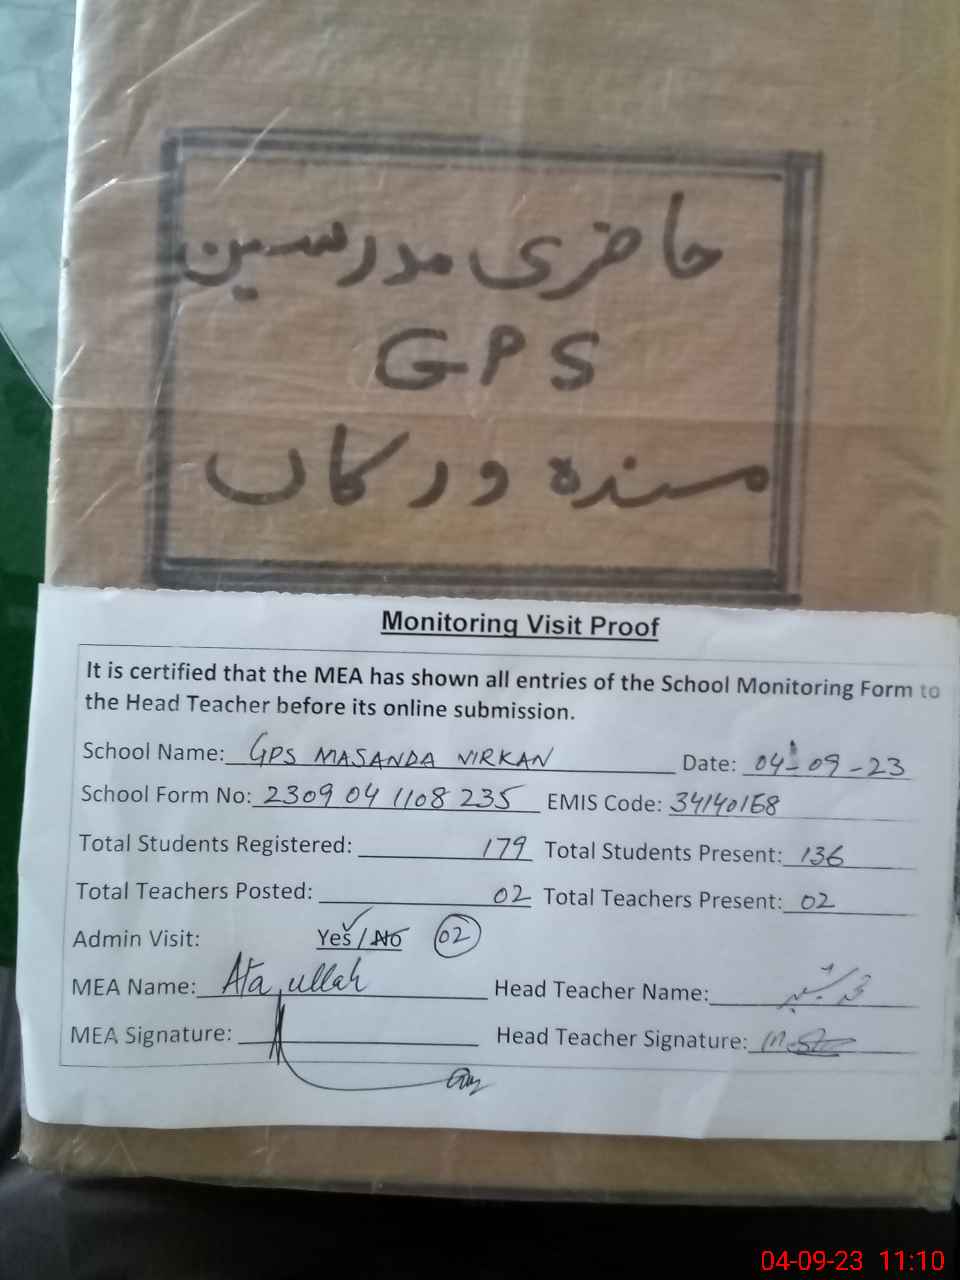 حاضری مدرسین
GPS
مسندہ ورکاں
Monitoring Visit Proof
It is certified that the MEA has shown all entries of the School Monitoring Form to
the Head Teacher before its online submission.
School Name: GPS MASANDA VIRKAN Date: 04-09-23
School Form No: 2309 04 1108 235 EMIS Code: 34140168
Total Students Registered: 179 Total Students Present: 136
Total Teachers Posted: 02 Total Teachers Present: 02
Admin Visit: Yes / No 02
MEA Name: Ata ullah Head Teacher Name:
MEA Signature: Head Teacher Signature:
04-09-23 11:10